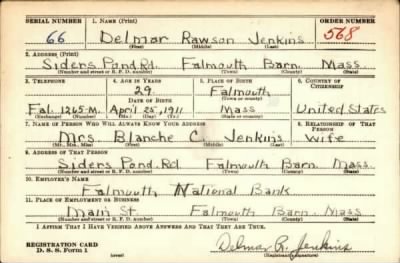 SERIAL NUMBER 1. NAME (Print) ORDER NUMBER
66 Delmar Rawson Jenkins 568
(First) (Middle) (Last)
2. ADDRESS (Print)
Siders Pond Rd. Falmouth Barn. Mass.
(Number and street or R. F. D. number) (Town) (County) (State)
3. TELEPHONE 4. AGE IN YEARS 5. PLACE OF BIRTH 6. COUNTRY OF CITIZENSHIP
29 Falmouth
DATE OF BIRTH (Town or county)
Fal. 1265-M. April 25, 1911 Mass United States
(Exchange) (Number) (Mo.) (Day) (Yr.) (State or country)
7. NAME OF PERSON WHO WILL ALWAYS KNOW YOUR ADDRESS 8. RELATIONSHIP OF THAT PERSON
Mrs. Blanche C. Jenkins Wife
(Mr., Mrs., Miss) (First) (Middle) (Last)
9. ADDRESS OF THAT PERSON
Siders Pond Rd Falmouth Barn. Mass.
(Number and street or R. F. D. number) (Town) (County) (State)
10. EMPLOYER'S NAME
Falmouth National Bank
11. PLACE OF EMPLOYMENT OR BUSINESS
Main St. Falmouth Barn. Mass
(Number and street or R. F. D. number) (Town) (County) (State)
I AFFIRM THAT I HAVE VERIFIED ABOVE ANSWERS AND THAT THEY ARE TRUE.
REGISTRATION CARD
D. S. S. Form 1 (over) Delmar R. Jenkins
(Registrant's signature)